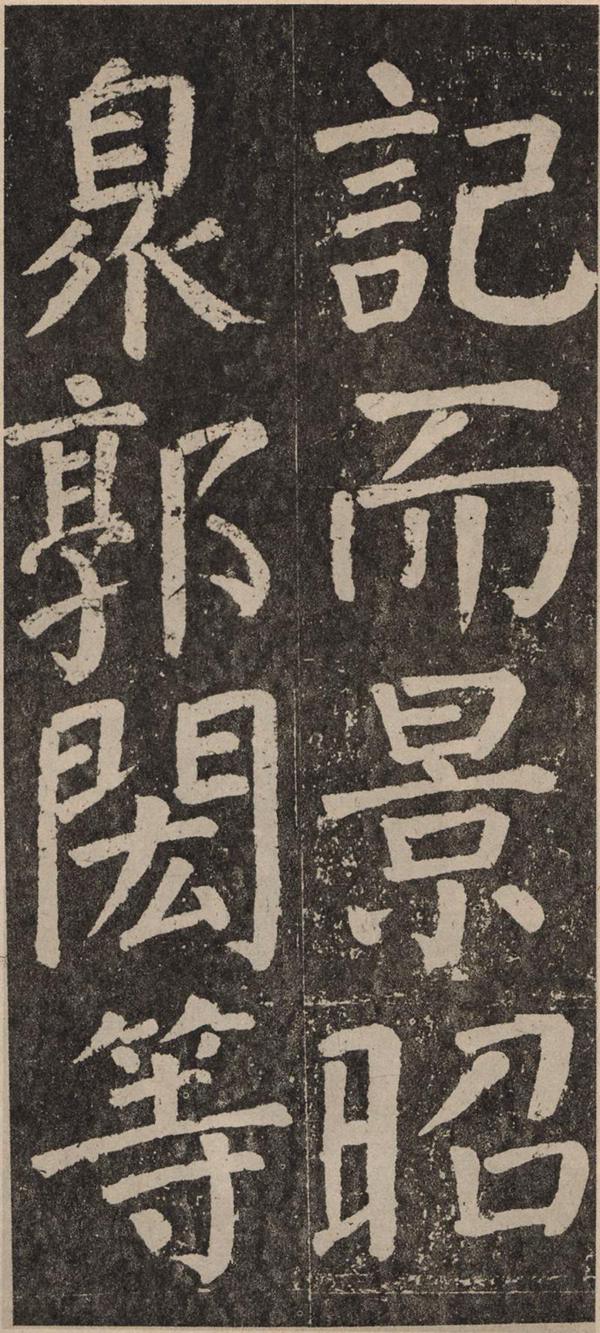 記而景昭
泉郭閎等